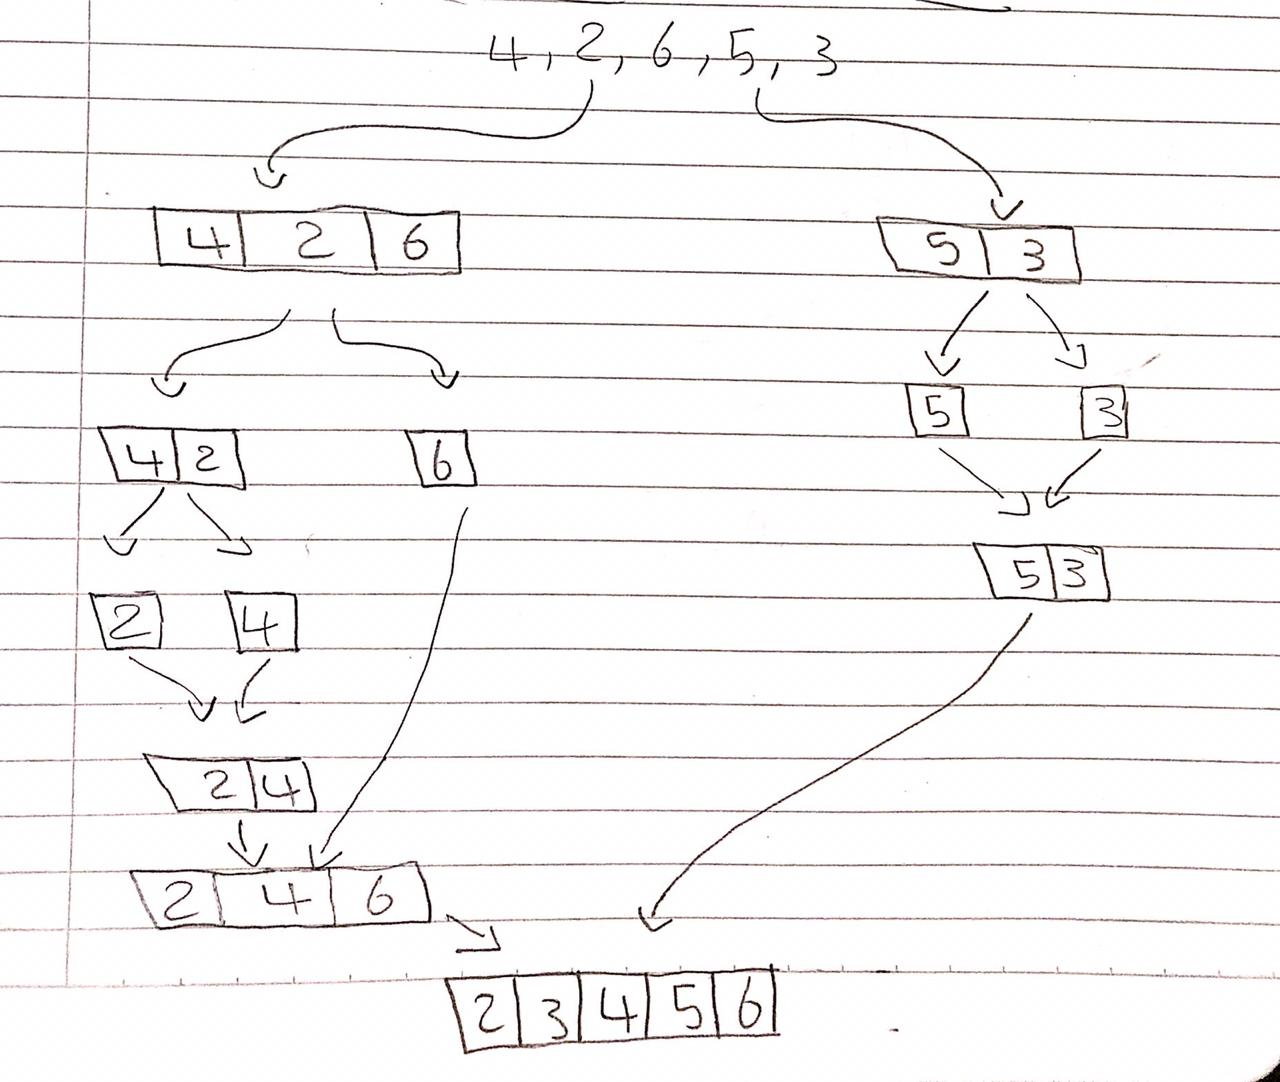 4, 2, 6, 5, 3
4 2 6
5 3
5 3
4 2 6
5 3
2 4
2 4
2 4 6
2 3 4 5 6